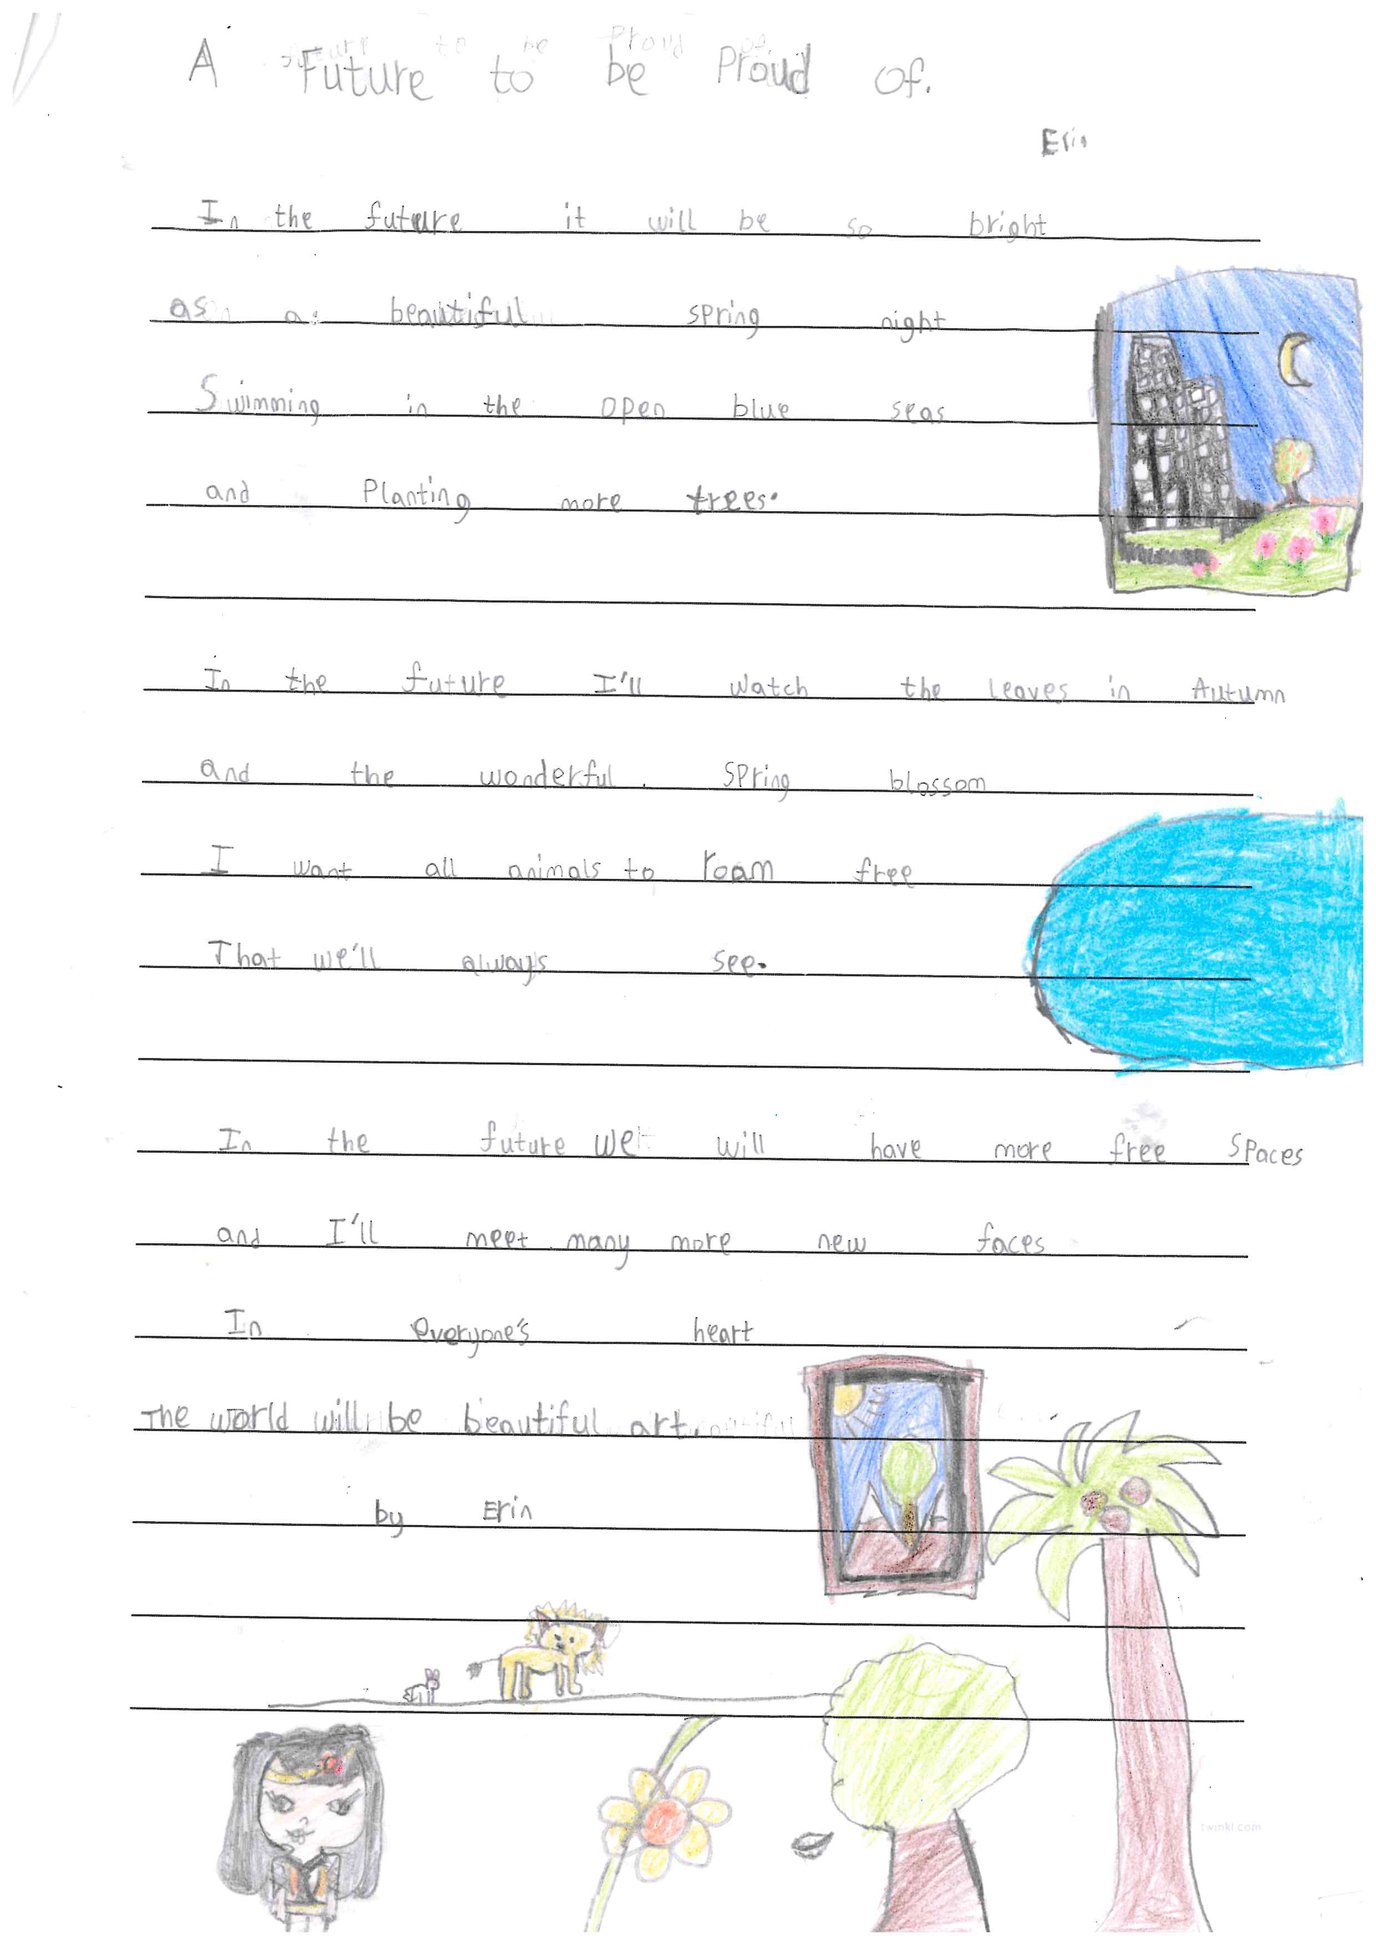 A Future to be Proud of.
Erin
In the future it will be so bright
as a beautiful spring night
Swimming in the open blue seas
and Planting more trees.
In the future I'll watch the leaves in Autumn
and the wonderful spring blossom
I want all animals to roam free
That we'll always see.
In the future we will have more free spaces
and I'll meet many more new faces
In everyone's heart
The world will be beautiful art.
by Erin
twinkl.com